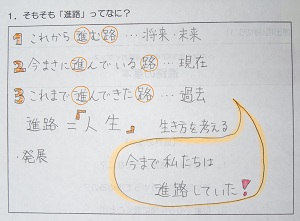 1．そもそも「進路」ってなに？
1 これから進む路…将来・未来
2 今まさに進んでいる路…現在
3 これまで進んできた路…過去
進路＝『人生』 生き方を考える
・発展
今まで私たちは
進路していた！